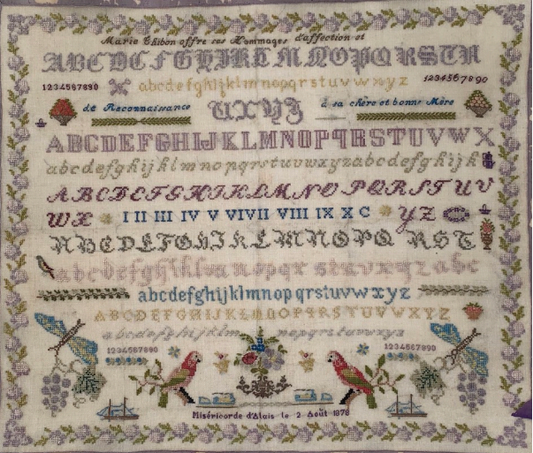 Marie Thibon offre ses Hommages d'affection et
ABCDEFGHIJKLMNOPQRSTU
1234567890 abcdefghijklmnopqrstuvwxyz 1234567890
de Reconnaissance VXYZ à sa chère et bonne Mère
ABCDEFGHIJKLMNOPQRSTUVWX
abcdefghijklmnopqrstuvwxyzabcdefghijk
ABCDEFGHIKLMNOPQRSTUV
WX I II III IV V VI VII VIII IX X C YZ
ABCDEFGHIKLMNOPQRST
abcdefghijklmnopqrstuvxyzabc
abcdefghijklmnopqrstuvwxyz
ABCDEFGHIJKLMNOPQRSTUVWXYZ
abcdefghijklm nopqrstuvwxyz
1234567890 1234567890
Miséricorde d'Alais le 2 Août 1878